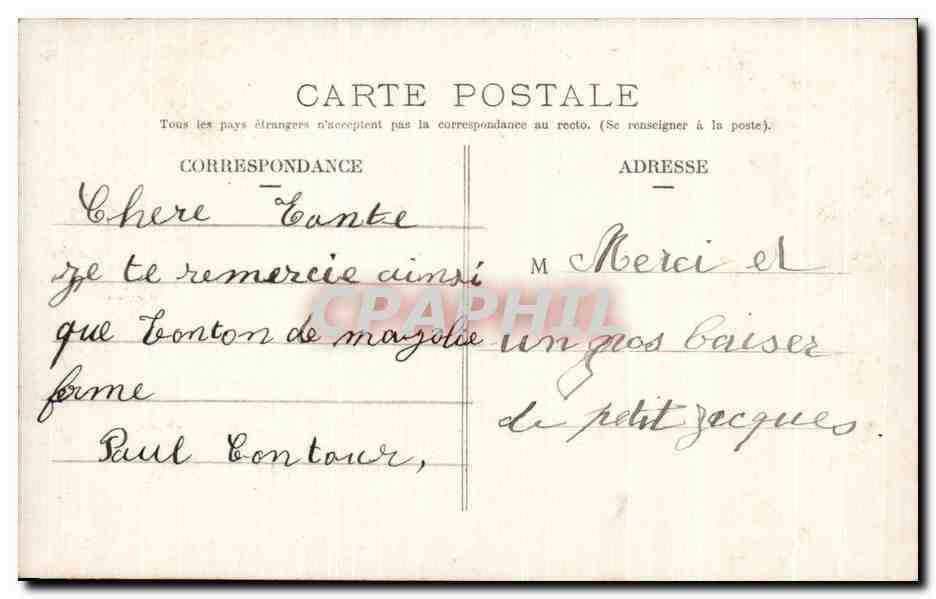 CARTE POSTALE
Tous les pays étrangers n'acceptent pas la correspondance au recto. (Se renseigner à la poste).
CORRESPONDANCE
Chere Tante
je te remercie ainsi
que Tonton de ma jolie
ferme
Paul Contour,
ADRESSE
M Merci et
un gros baiser
de petit Jacques.
CPARHIL